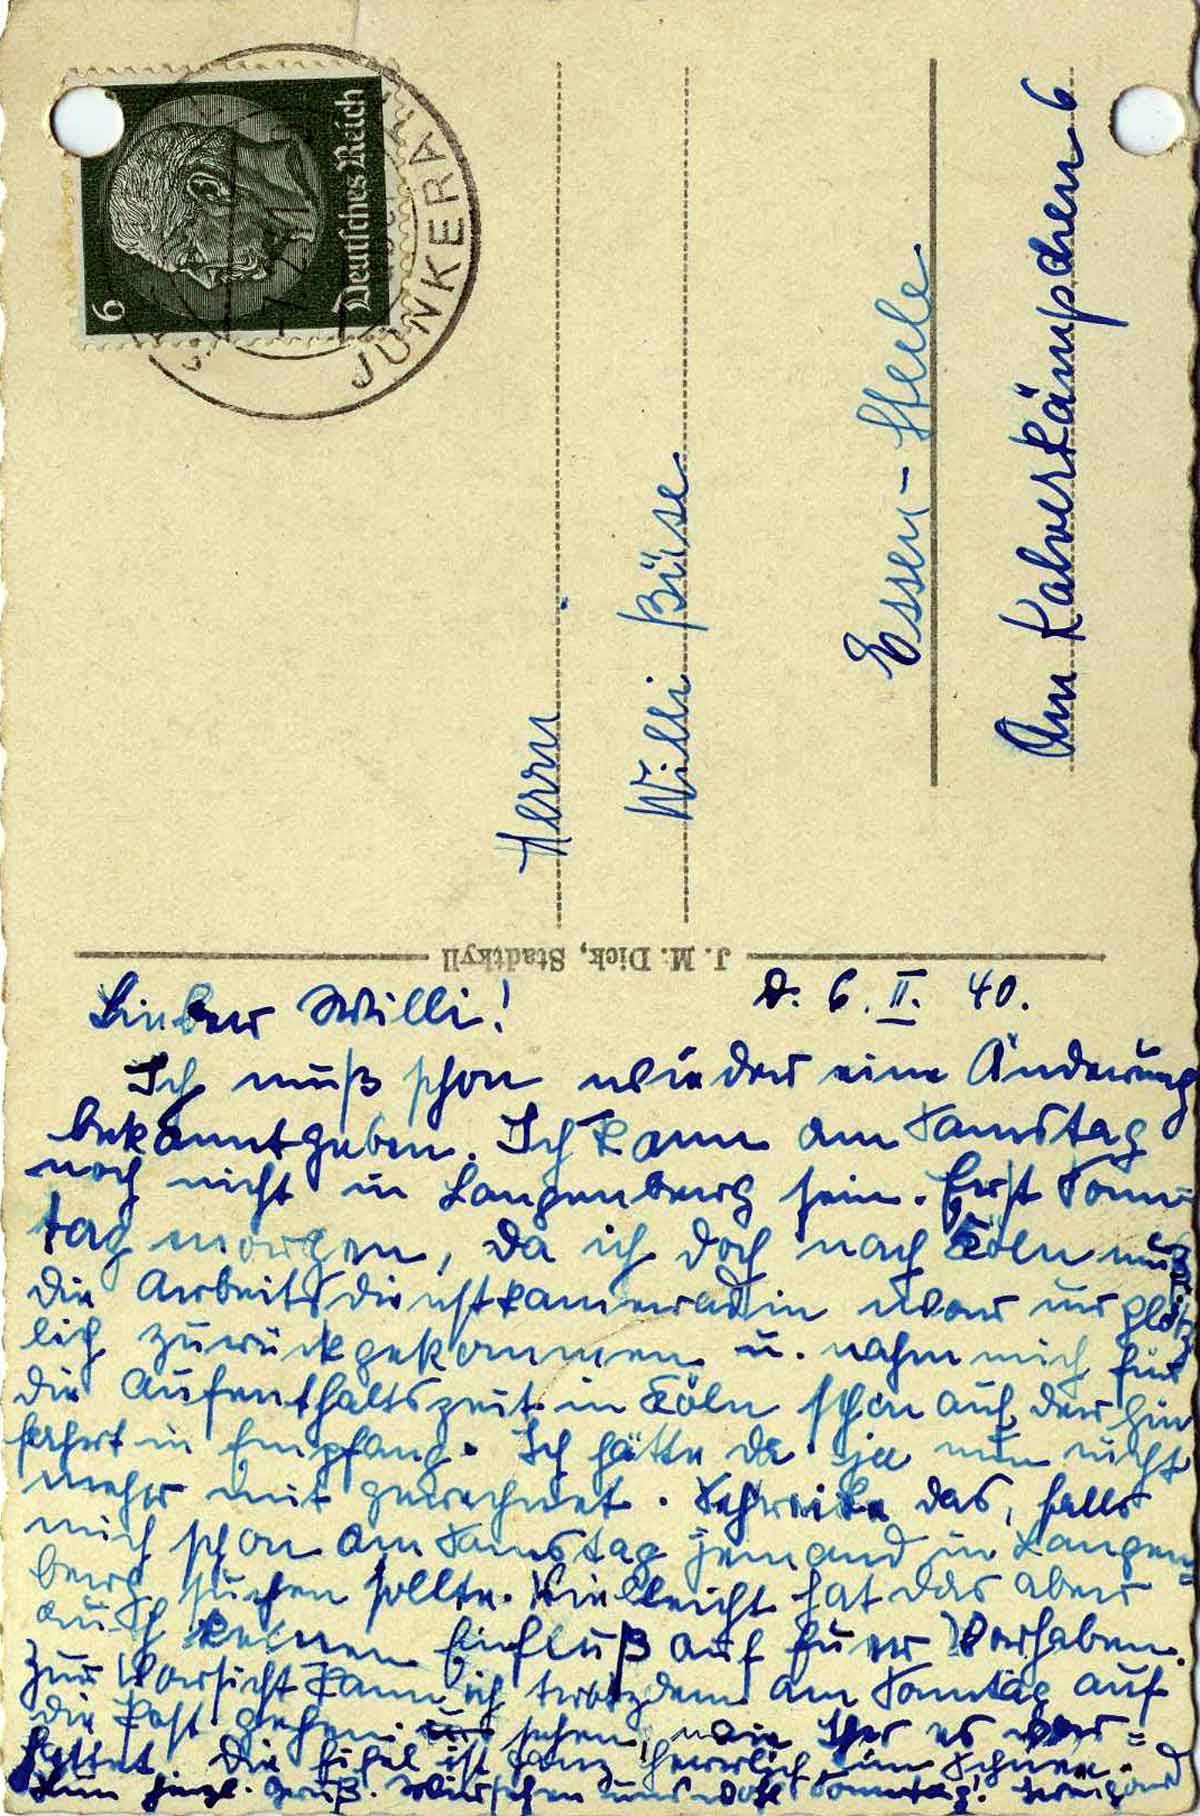 6
Deutsches Reich
JÜNKERA
Herrn
Willi Büse
Essen-Steele
Am Kalverkämpchen 6
J. M. Dick, Stadtkyll
d. 6. II. 40.
Lieber Willi!
Ich muß schon wieder eine Änderung
bekanntgeben. Ich kann am Samstag
noch nicht in Langenberg sein. Erst Sonn-
tag morgen, da ich doch nach Köln muß
die Arbeitsdienstkameradin war urplötz
lich zurückgekommen u. nahm mich für
die Aufenthaltszeit in Köln schon auf der Hin
fahrt in Empfang. Ich hätte da ja nun nicht
mehr mit gerechnet. Schreibe das, falls
mich schon am Samstag jemand in Langen=
berg suchen sollte. Vielleicht hat das aber
auch keinen Einfluß auf Euer Vorhaben.
Zur Vorsicht kann ich trotzdem am Sonntag auf
die Post gehen. sehen, wie Ihr es
hattet. Die Eifel ist ganz herrlich im Schnee.
Nun herzl. Gruß. uns Sonntag!